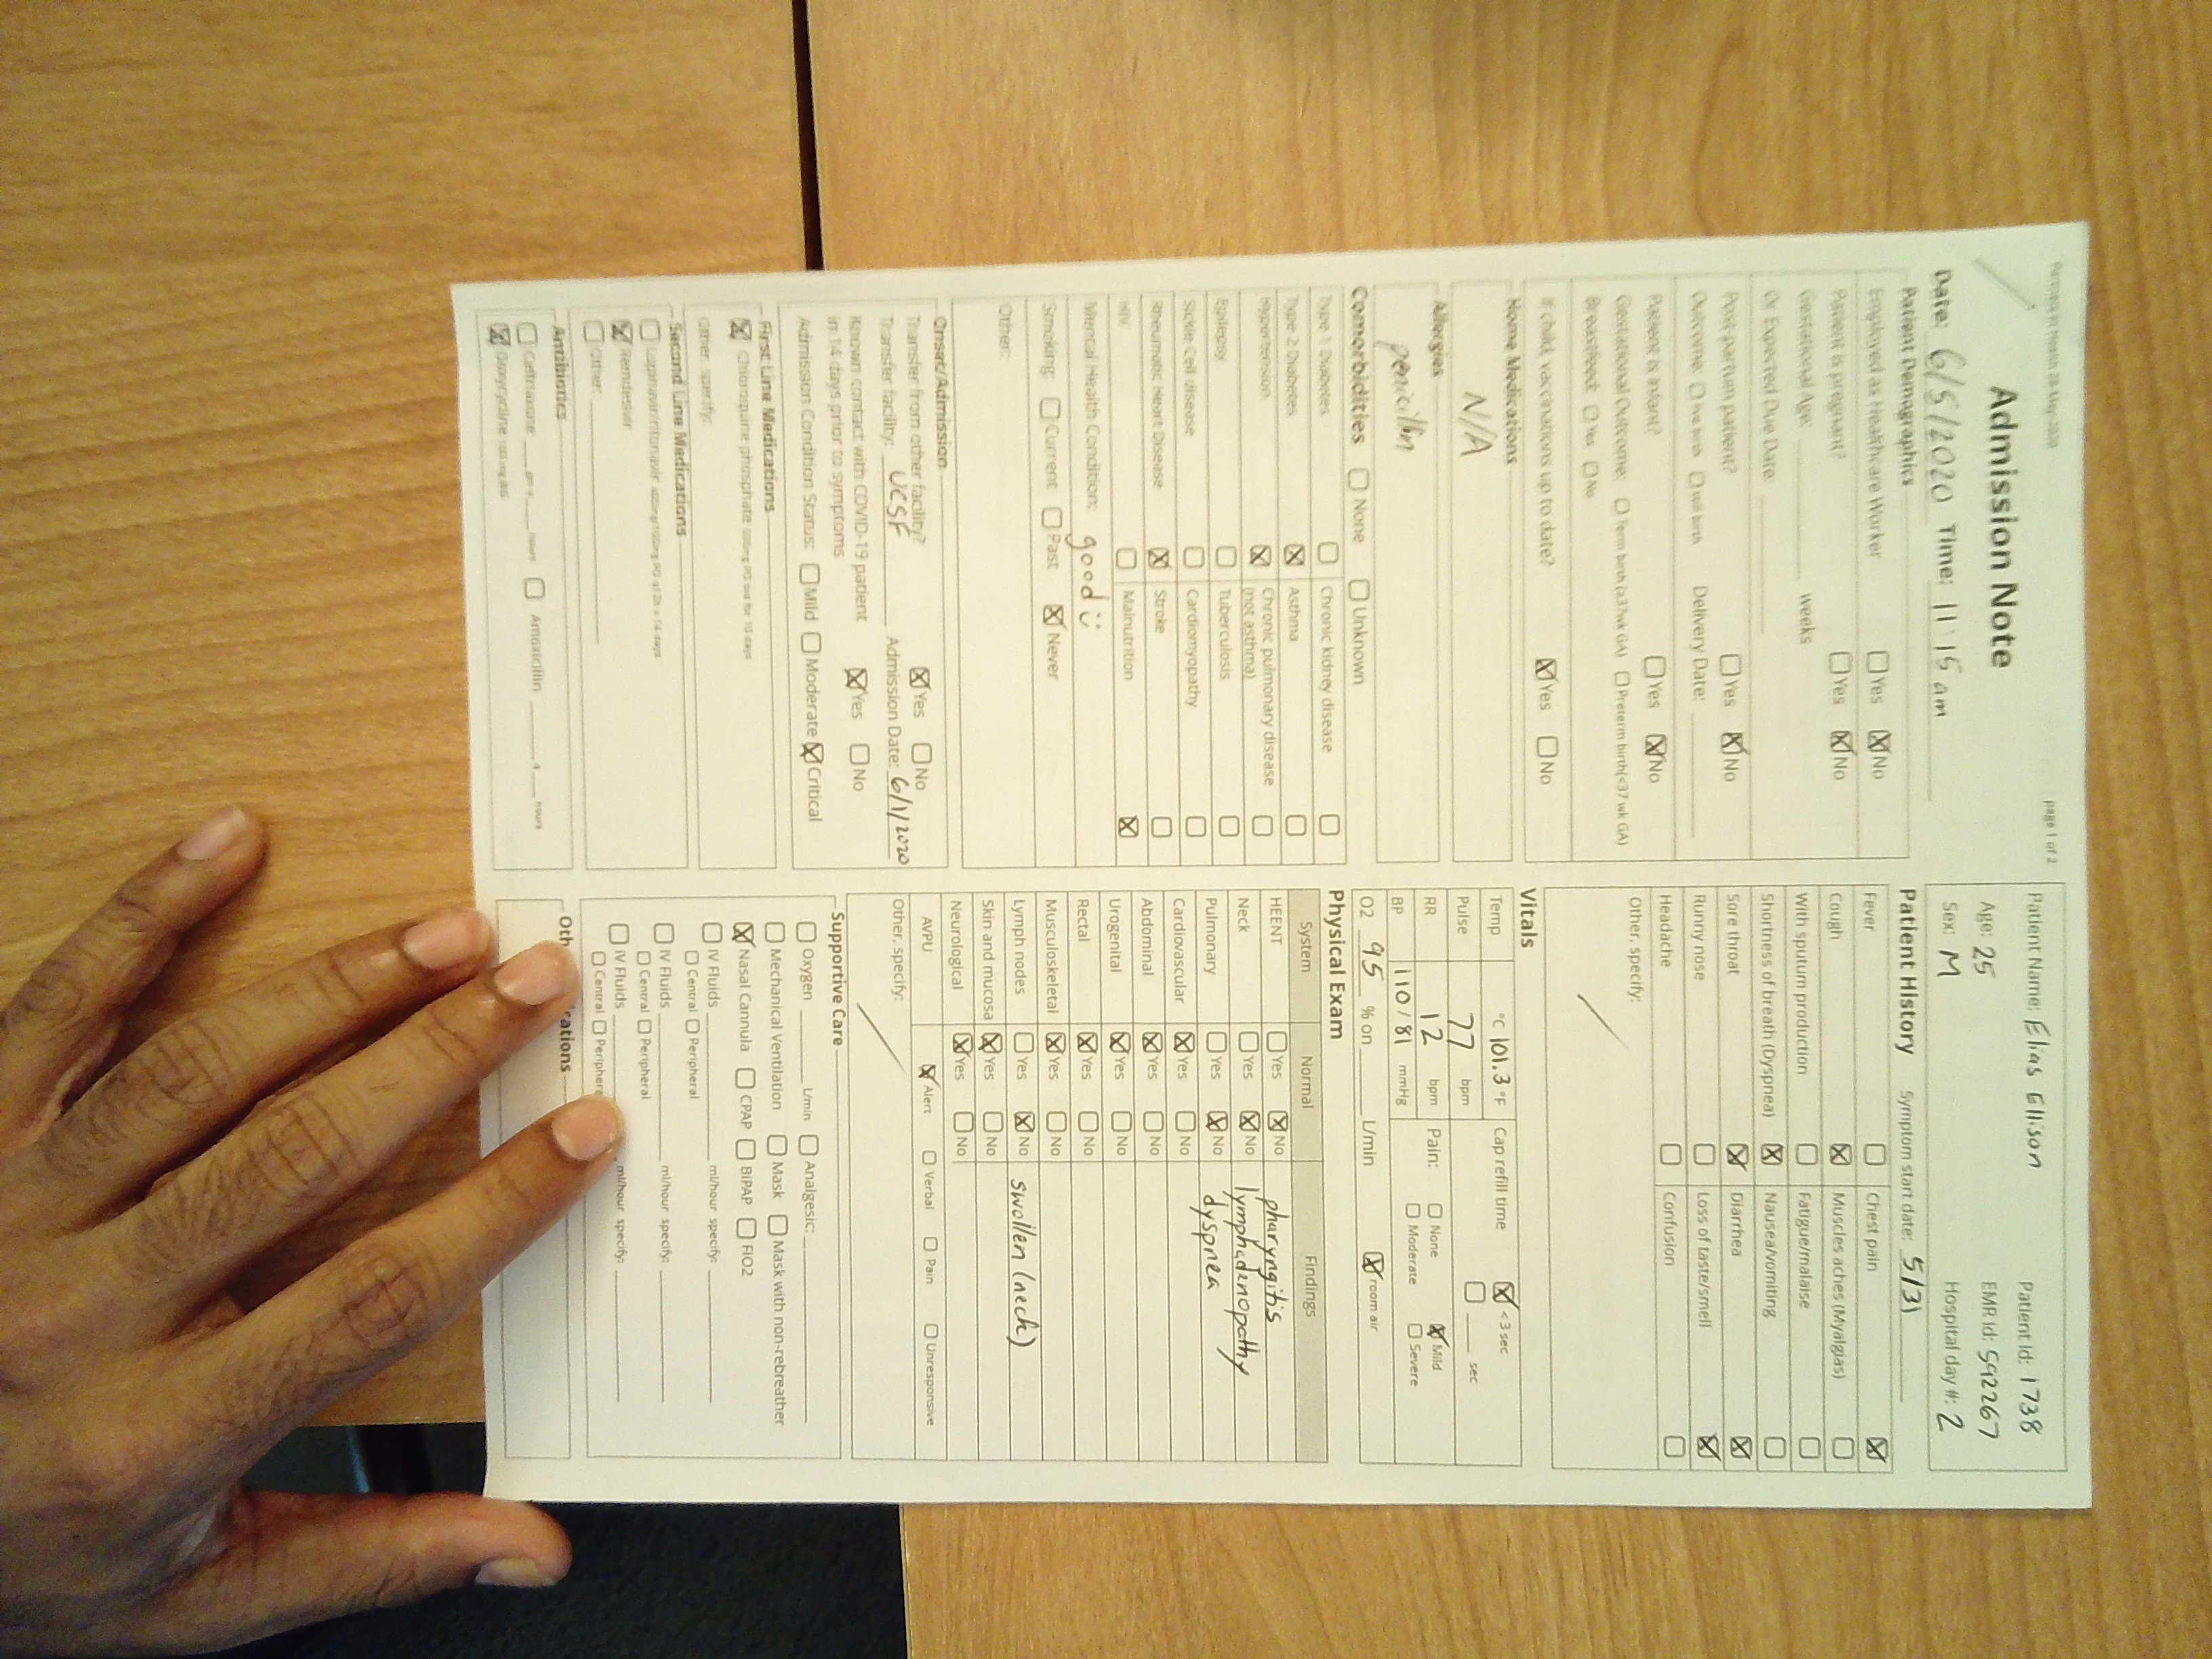 Partners In Health 28 May 2020
page 1 of 2
Admission Note
Date: 6/5/2020 Time: 11:15 am
Patient Demographics
Employed as Healthcare Worker ☐ Yes ☒ No
Patient is pregnant? ☐ Yes ☒ No
Gestational Age: weeks
Or Expected Due Date:
Post-partum patient? ☐ Yes ☒ No
Outcome: ☐ live birth ☐ still birth Delivery Date:
Patient is infant? ☐ Yes ☒ No
Gestational Outcome: ☐ Term birth (≥37wk GA) ☐ Preterm birth(<37 wk GA)
Breastfeed: ☐ Yes ☐ No
If child, vaccinations up to date? ☒ Yes ☐ No
Home Medications
N/A
Allergies
penicillin
Comorbidities ☐ None ☐ Unknown
Type 1 Diabetes ☐ Chronic kidney disease ☐
Type 2 Diabetes ☒ Asthma ☐
Hypertension ☒ Chronic pulmonary disease (not asthma) ☐
Epilepsy ☐ Tuberculosis ☐
Sickle Cell disease ☐ Cardiomyopathy ☐
Rheumatic Heart Disease ☒ Stroke ☐
HIV ☐ Malnutrition ☒
Mental Health Condition: good
Smoking: ☐ Current ☐ Past ☒ Never
Other:
Onset/Admission
Transfer from other facility? ☒ Yes ☐ No
Transfer facility: UCSF Admission Date: 6/1/2020
Known contact with COVID-19 patient
in 14 days prior to symptoms ☒ Yes ☐ No
Admission Condition Status: ☐ Mild ☐ Moderate ☒ Critical
First Line Medications
☒ Chloroquine phosphate 500mg PO bid for 10 days
Other, specify:
Second Line Medications
☐ Lopinavir/ritonavir 400mg/100mg PO q12h x 14 days
☒ Remdesivir
☐ Other:
Antibiotics
☐ Ceftriaxone gm q hours ☐ Amoxicillin q hours
☒ Doxycycline 100 mg BID
Patient Name: Elias Ellison Patient Id: 1738
Age: 25 EMR Id: 592267
Sex: M Hospital day #: 2
Patient History Symptom start date: 5/31
Fever ☐ Chest pain ☒
Cough ☒ Muscles aches (Myalgias) ☐
With sputum production ☐ Fatigue/malaise ☐
Shortness of breath (Dyspnea) ☒ Nausea/vomiting ☐
Sore throat ☒ Diarrhea ☒
Runny nose ☐ Loss of taste/smell ☒
Headache ☐ Confusion ☐
Other, specify:
Vitals
Temp °C 101.3 °F Cap refill time ☒ <3 sec
Pulse 77 bpm ☐ sec
RR 12 bpm Pain: ☐ None ☒ Mild
BP 110 / 81 mmHg ☐ Moderate ☐ Severe
O2 95 % on L/min ☒ room air
Physical Exam
System Normal Findings
HEENT ☐ Yes ☒ No pharyngitis
Neck ☐ Yes ☒ No lymphadenopathy
Pulmonary ☐ Yes ☒ No dyspnea
Cardiovascular ☒ Yes ☐ No
Abdominal ☒ Yes ☐ No
Urogenital ☒ Yes ☐ No
Rectal ☒ Yes ☐ No
Musculoskeletal ☒ Yes ☐ No
Lymph nodes ☐ Yes ☒ No swollen (neck)
Skin and mucosa ☒ Yes ☐ No
Neurological ☒ Yes ☐ No
AVPU ☒ Alert ☐ Verbal ☐ Pain ☐ Unresponsive
Other, specify:
Supportive Care
☐ Oxygen L/min ☐ Analgesic:
☐ Mechanical Ventilation ☐ Mask ☐ Mask with non-rebreather
☒ Nasal Cannula ☐ CPAP ☐ BiPAP ☐ FIO2
☐ IV Fluids ml/hour specify:
☐ Central ☐ Peripheral
☐ IV Fluids ml/hour specify:
☐ Central ☐ Peripheral
☐ IV Fluids ml/hour specify:
☐ Central ☐ Periphera
Oth cations